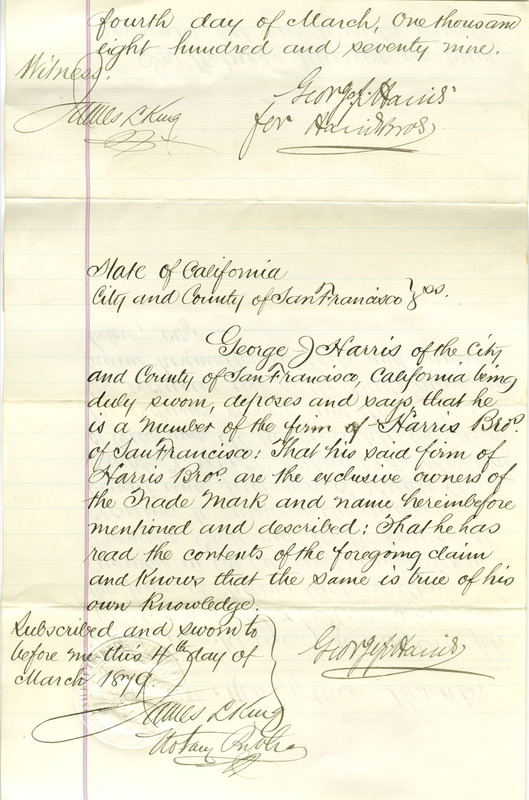 fourth day of March, One thousand
eight hundred and seventy nine.
Witness.
James L King
George J. Harris
for Harris Bros
State of California
City and County of San Francisco } ss.
George J Harris of the City
and County of San Francisco, California being
duly sworn, deposes and says, that he
is a member of the firm of Harris Bros.
of San Francisco: That his said firm of
Harris Bros. are the exclusive owners of
the Trade Mark and name hereinbefore
mentioned and described: That he has
read the contents of the foregoing claim
and knows that the same is true of his
own knowledge.
Subscribed and sworn to
before me this 4th day of
March 1879.
George J. Harris
James L King
Notary Public